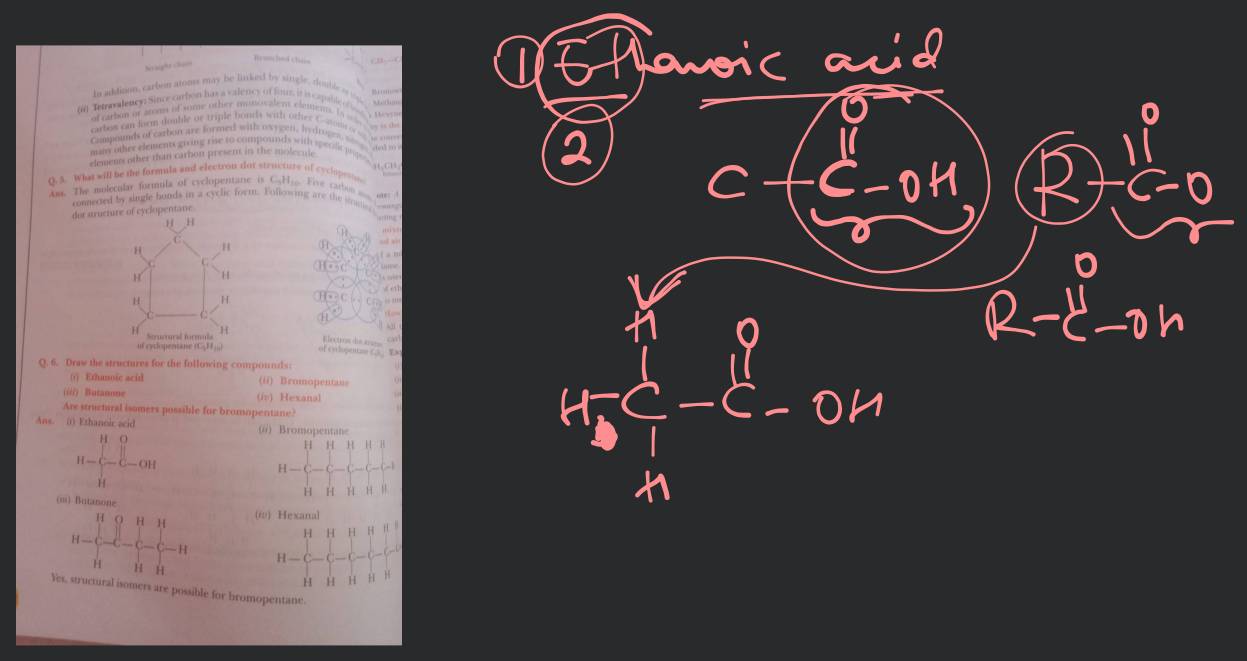 Straight chain
Branched chain
In addition, carbon atoms may be linked by single, double
(ii) Tetravalency: Since carbon has a valency of four, it is capable of
of carbon or atoms of some other monovalent elements.
carbon can form double or triple bonds with other C-atoms or
Compounds of carbon are formed with oxygen, hydrogen,
many other elements giving rise to compounds with specific
elements other than carbon present in the molecule.
Q. 5. What will be the formula and electron dot structure of
Ans. The molecular formula of cyclopentane is C₅H₁₀. Five carbon
connected by single bonds in a cyclic form. Following are the
dot structure of cyclopentane.
H H
C
H C C H
H H
H C C H
H H
Structural formula
of cyclopentane (C₅H₁₀)
Electron dot
of cyclopentane
Q. 6. Draw the structures for the following compounds:
(i) Ethanoic acid (ii) Bromopentane
(iii) Butanone (iv) Hexanal
Are structural isomers possible for bromopentane?
Ans. (i) Ethanoic acid (ii) Bromopentane
H O
H—C—C—OH
H
H H H H H
H—C—C—C—C—C
H H H H H
(iii) Butanone (iv) Hexanal
H O H H
H—C—C—C—C—H
H H H
H H H H H
H—C—C—C—C—C
H H H H H
Yes, structural isomers are possible for bromopentane.
① Ethanoic acid
2
O
C—C—OH
O
R—C—O
O
R—C—OH
H O
H—C—C—OH
H